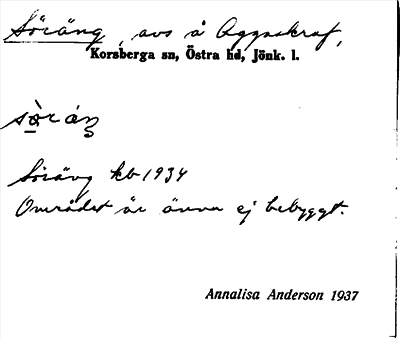 Söräng, avs å Aggaskruf,
Korsberga sn, Östra hd, Jönk. l.
sò̱ráŋ
Söräng kb 1934
Området är ännu ej bebyggt.
Annalisa Anderson 1937